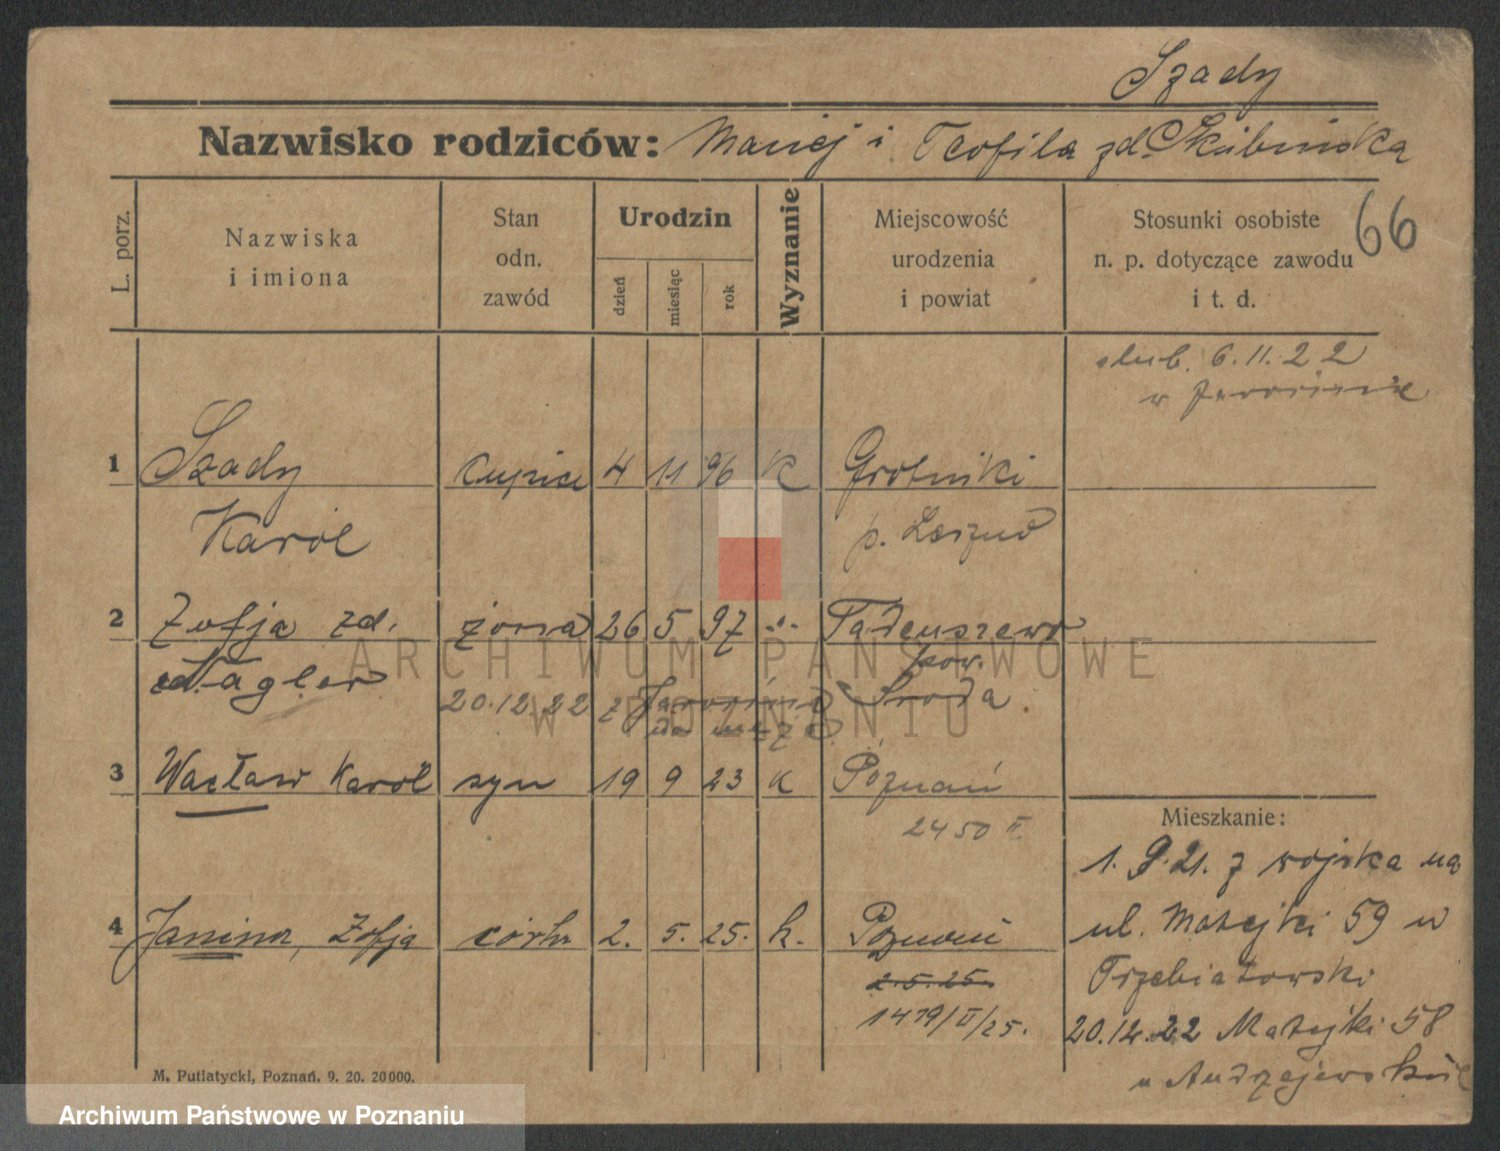 Szady
Nazwisko rodziców: Maciej i Teofila zd. Skibińska
66
L. porz.
Nazwiska i imiona
Stan odn. zawód
Urodzin
dzień
miesiąc
rok
Wyznanie
Miejscowość urodzenia i powiat
Stosunki osobiste n. p. dotyczące zawodu i t. d.
ślub. 6.11.22
w Jarocinie
1 Szady kupiec 4 11 96 K Grotniki
Karol p. Leszno
2 Zofja zd. żona 26 5 97 -"- Tadeuszewo
pow.
Nagler Środa
20.12.22 z Jarocina
do męża
3 Wacław Karol syn 19 9 23 k Poznań
2450 II.
4 Janina, Zofja córka 2. 5. 25. k. Poznań
2.5.25.
1479/II/25.
Mieszkanie:
1. 9. 21. z wojska na
ul. Matejki 59 u
Trzebiatowski
20.12.22 Matejki 58
u Andrzejewski
M. Putiatycki, Poznań. 9. 20. 20000.
ARCHIWUM PAŃSTWOWE
W POZNANIU
Archiwum Państwowe w Poznaniu